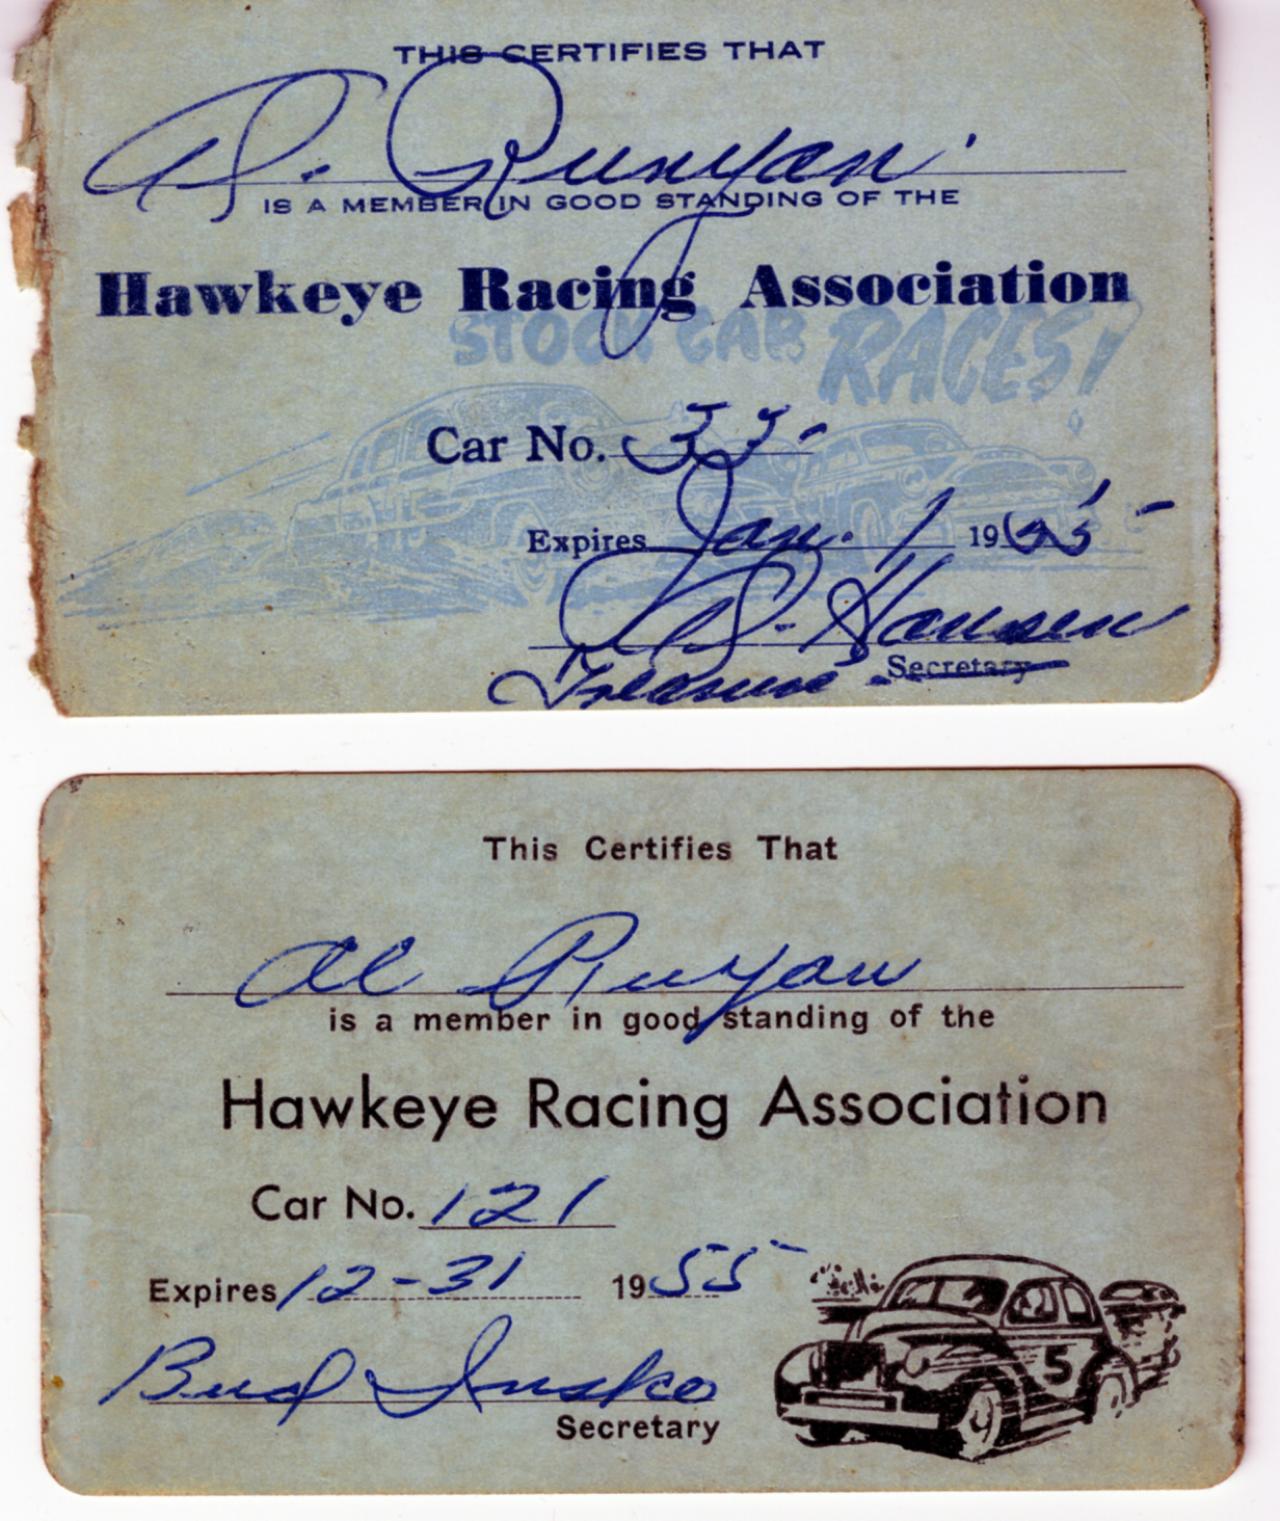 THIS CERTIFIES THAT
Al. Runyan.
IS A MEMBER IN GOOD STANDING OF THE
Hawkeye Racing Association
STOCK CAR RACES!
Car No. 33-
Expires Jan. 1 1965-
Al. Hansen
Treasurer - Secretary
This Certifies That
Al Runyan
is a member in good standing of the
Hawkeye Racing Association
Car No. 121
Expires 12-31 1955-
Bud Insko
Secretary
5